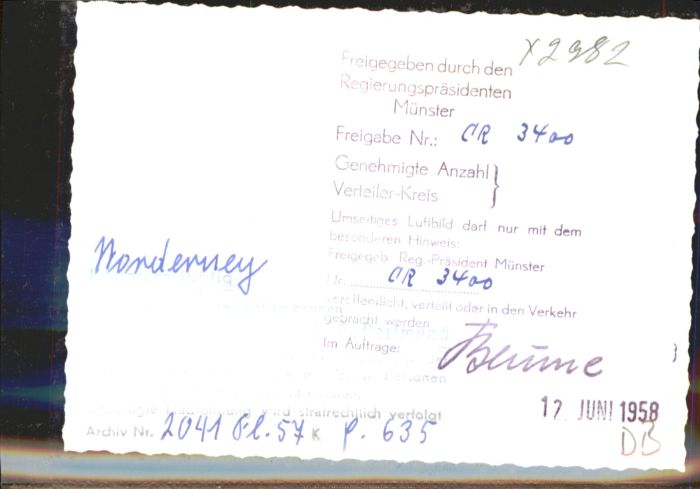 X2982
Freigegeben durch den
Regierungspräsidenten
Münster
Freigabe Nr.: CR 3400
Genehmigte Anzahl
Verteiler-Kreis
Umseitiges Luftbild darf nur mit dem
besonderen Hinweis:
Freigegeb. Reg.-Präsident Münster
Norderney
Nr. CR 3400
veröffentlicht, verteilt oder in den Verkehr
gebracht werden
Im Auftrage:
Personen
wird strafrechtlich verfolgt
12. JUNI 1958
Archiv Nr. 2041 Pl. 57 K p. 635
DB